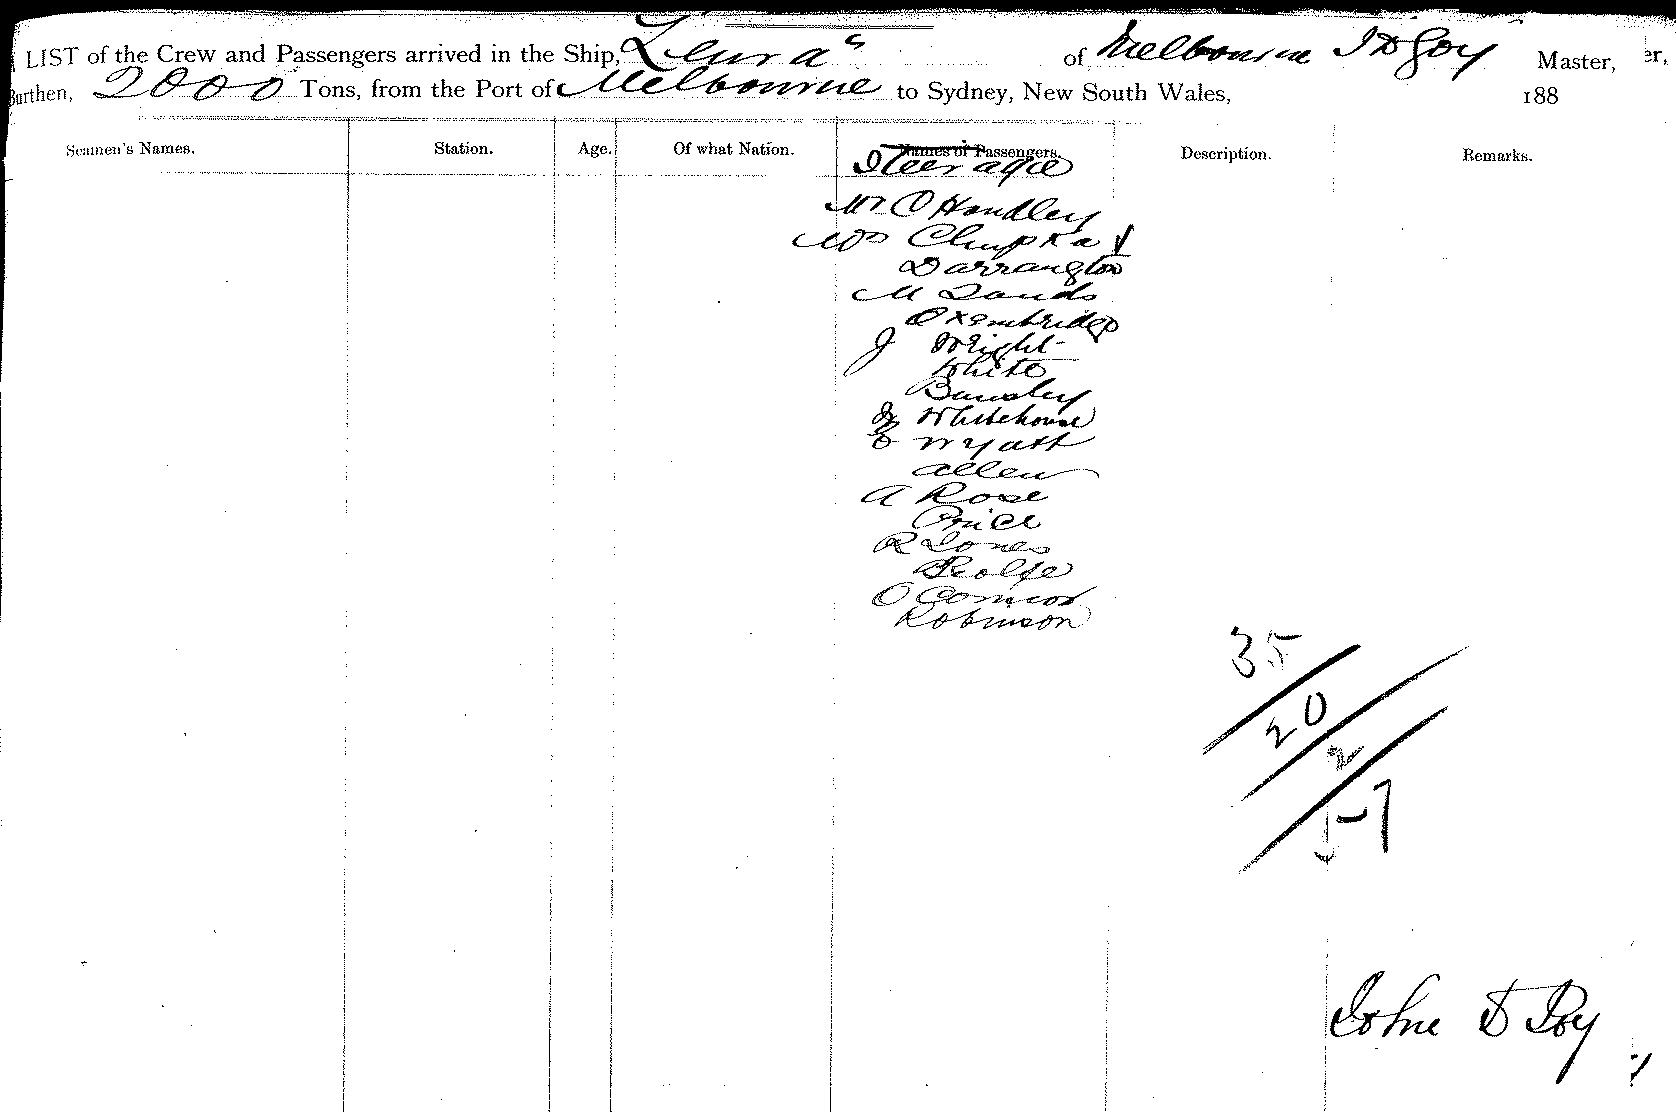 LIST of the Crew and Passengers arrived in the Ship, "Leura" of Melbourne J D Joy Master, er,
Burthen, 2000 Tons, from the Port of Melbourne to Sydney, New South Wales, 188
Seamen's Names. Station. Age. Of what Nation. Names of Passengers. Description. Remarks.
Steerage
Mr O Handley
Darrangton
M Sands
Oxenbridge
J Wright
White
Bensley
Whitehouse
E Wyatt
Allen
A Rose
Price
R Jones
Rolfe
O Connor
Robinson
35
20
2
57
John D Joy